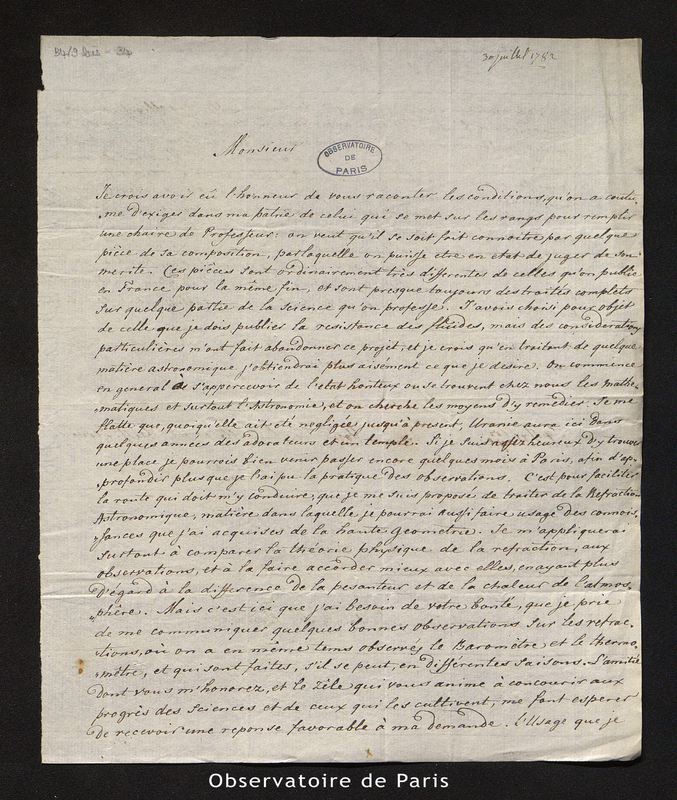 30 juillet 1782
Monsieur
OBSERVATOIRE
DE
PARIS
Je crois avoir eû l'honneur de vous raconter les conditions, qu'on a coutu-
-me d'exiger dans ma patrie de celui qui se met sur les rangs pour remplir
une chaire de Professeur: on veut qu'il se soit fait connoitre par quelque
pièce de sa composition, par laquelle on puisse etre en etat de juger de son
merite. Ces pièces sont ordinairement très differentes de celles qu'on publie
en France pour la même fin, et sont presque toujours des traités complets
sur quelque partie de la Science qu'on professe. J'avois choisi pour objet
de celle que je dois publier la resistance des fluides, mais des considerations
particulières m'ont fait abandonner ce projet, et je crois qu'en traitant de quelque
matière astronomique j'obtiendrai plus aisément ce que je desire. On commence
en general à s'appercevoir de l'etat honteux ou se trouvent chez nous les mathe-
-matiques et surtout l'Astronomie, et on cherche les moyens d'y remedier. Je me
flatte que, quoiqu'elle ait eté negligée jusqu'à present, Uranie aura ici dans
quelques années des adorateurs et un temple. Si je suis assez heureux d'y trouver
une place je pourrois bien venir passer encore quelques mois à Paris, afin d'ap-
-profondir plus que je l'ai pu la pratique des observations. C'est pour faciliter
la route qui doit m'y conduire, que je me suis proposé de traiter de la Refraction
Astronomique, matière dans laquelle je pourrai aussi faire usage des connois-
-sances que j'ai acquises de la haute Geometrie. Je m'appliquerai
surtout à comparer la théorie physique de la refraction, aux
observations, et à la faire accorder mieux avec elles, en ayant plus
d'egard à la difference de la pesanteur et de la chaleur de l'atmos-
-phère. Mais c'est ici que j'ai besoin de votre bonté, que je prie
de me communiquer quelques bonnes observations sur les refrac-
-tions, où on a en même tems observé le Baromètre et le thermo-
-mètre, et qui sont faites, s'il se peut, en differentes saisons. L'amitié
dont vous m'honorez, et le zèle qui vous anime à concourir aux
progrès des Sciences et de ceux qui les cultivent, me font esperer
de recevoir une reponse favorable à ma demande. L'usage que je
Observatoire de Paris